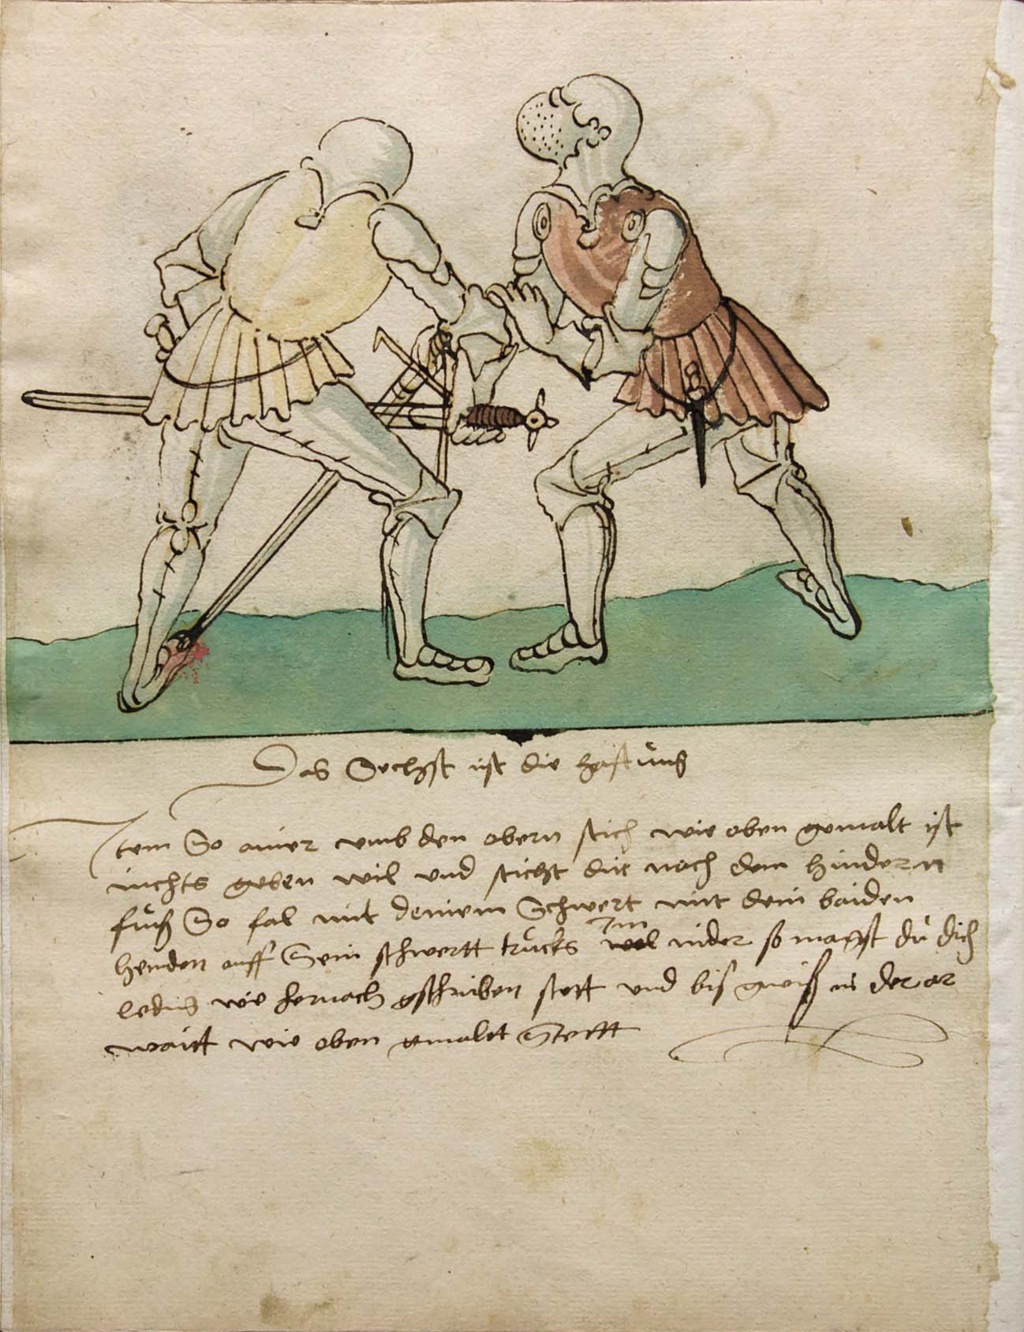 Das Sechst ist die haftung
Item So ainer umb den obern stich wie oben gemalt ist
nichts geben wil und sticht dir nach dem hindern
fuß So fal mit deinem Schwert mit dein baiden
henden auff Sein schwertt trucks Im wol nider so machst dů dich
ledig wie hernach gschriben stett und bis gwiß in der ar
waitt wie oben gmalet Stett